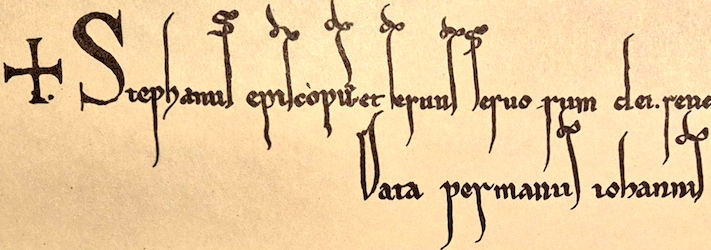 ✠ Stephanus episcopus et seruus seruorum dei.
Data per manus iohannis